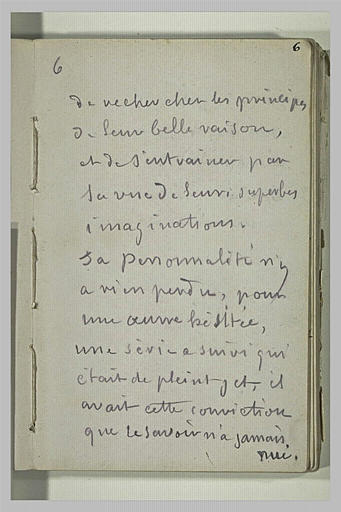 6
6
de rechercher les principes
de leur belle raison,
et de s'entrainer par
la vue de leurs superbes
imaginations.
Sa personnalité n'y
a rien perdu, pour
une œuvre hésitée,
une série a suivi qui
était de plein jet, il
avait cette conviction
que le savoir n'a jamais
nui.